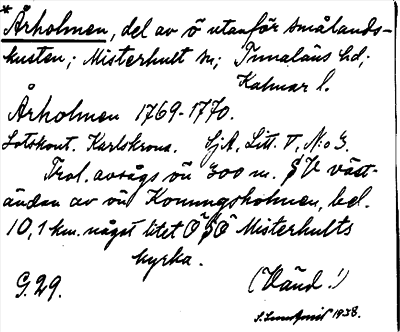 * Årholmen, del av ö utanför Smålands-
kusten; Misterhult sn; Tunaläns hd;
Kalmar l.
Årholmen 1769-1770.
Lotskont. Karlskrona. SjA, Litt. V, N:o 3.
Trol. avsågs ön 300 m. SV väst-
ändan av ön Konungsholmen, bel.
10,1 km. något litet OSO Misterhults
kyrka.
G. 29.
(Vänd!)
1938.